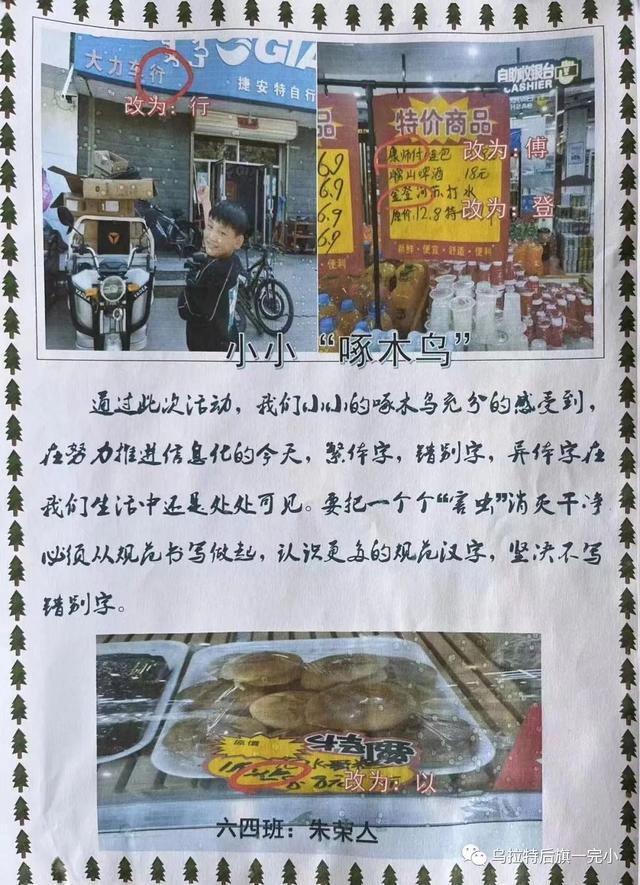 GIA
大力车行
捷安特自行
改为：行
自助收银台
CASHIER
特价商品
康师付 面包
18元
原价:12.8特
新鲜·便宜·舒适·便利
便利
6.9
6.9
6.9
6.9
改为：傅
改为：登
小小“啄木鸟”
通过此次活动，我们小小的啄木鸟充分的感受到，
在努力推进信息化的今天，繁体字，错别字，异体字在
我们生活中还是处处可见。要把一个个“害虫”消灭干净
必须从规范书写做起，认识更多的规范汉字，坚决不写
错别字。
原價
特價
改为：以
六四班：朱荣亼
乌拉特后旗一完小